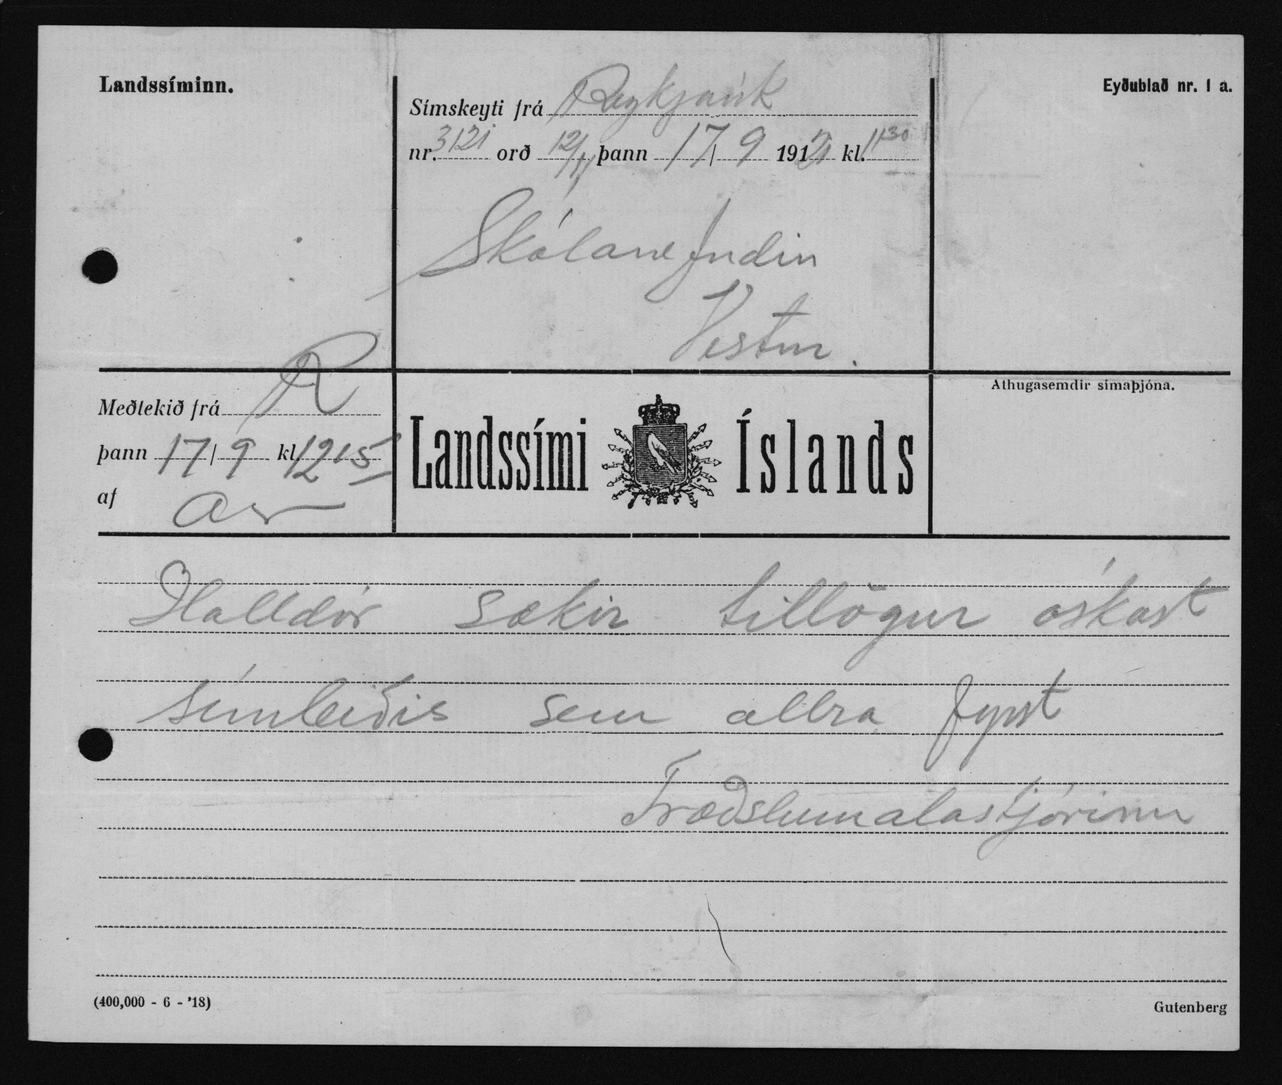 Landssíminn.
Eyðublað nr. 1 a.
Símskeyti frá Reykjavík
nr. 3121 orð 12/11 þann 17/9 1921 kl. 1130
Skólanefndin
Vestm.
Meðtekið frá R
þann 17/9 kl. 1215
af
Landssími Íslands
Athugasemdir símaþjóna.
Halldór sækir tillögur óskast
símleiðis sem allra fyrst
Fræðslumálastjórinn
(400,000 - 6 - '18)
Gutenberg